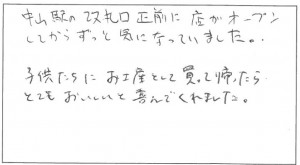 中山駅の改札口正前に店がオープン
してからずっと気になっていました。
子供たちにお土産として買って帰ったら
とてもおいしいと喜んでくれました。